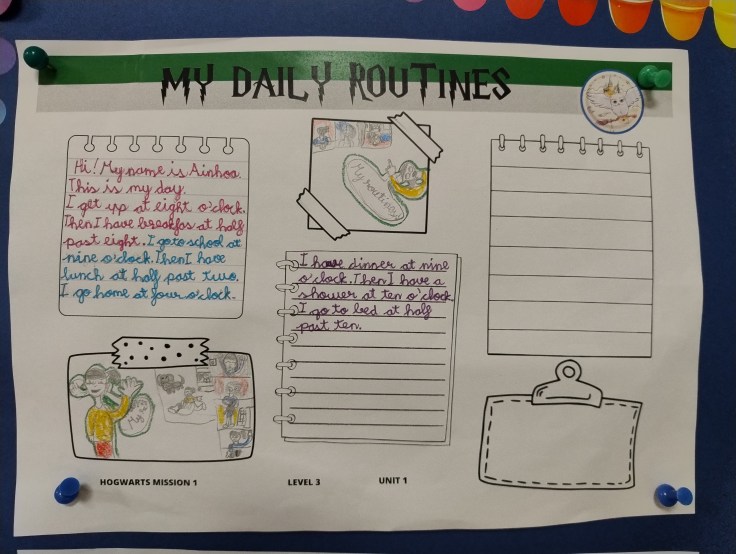 MY DAILY ROUTINES
Hi! My name is Ainhoa.
This is my day.
I get up at eight o'clock.
Then I have breakfas at half
past eight. I go to school at
nine o'clock. Then I have
lunch at half past two.
I go home at four o'clock.
My routines
I have dinner at nine
o'clock. Then I have a
shower at ten o'clock.
I go to bed at half
past ten.
My
HOGWARTS MISSION 1
LEVEL 3
UNIT 1